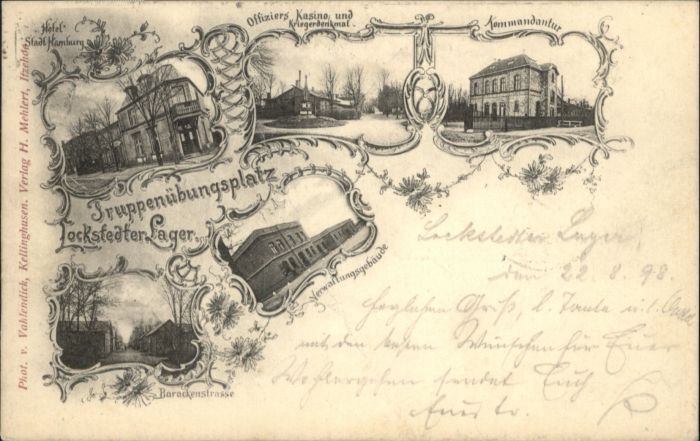 Hotel
Stadt Hamburg
Offiziers Kasino und
Kriegerdenkmal.
Kommandantur
Truppenübungsplatz
Lockstedter Lager.
Verwaltungsgebäude
Barackenstrasse
Phot. v. Vahlendick, Kellinghusen. Verlag H. Mehlert, Itzehoe.
Lockstedter Lager,
den 22.8.98.
Herzlichen Gruß, l. Tante u. l.
mit den besten Wünschen für Euer
Wohlergehen sendet Euch
Euer tr.